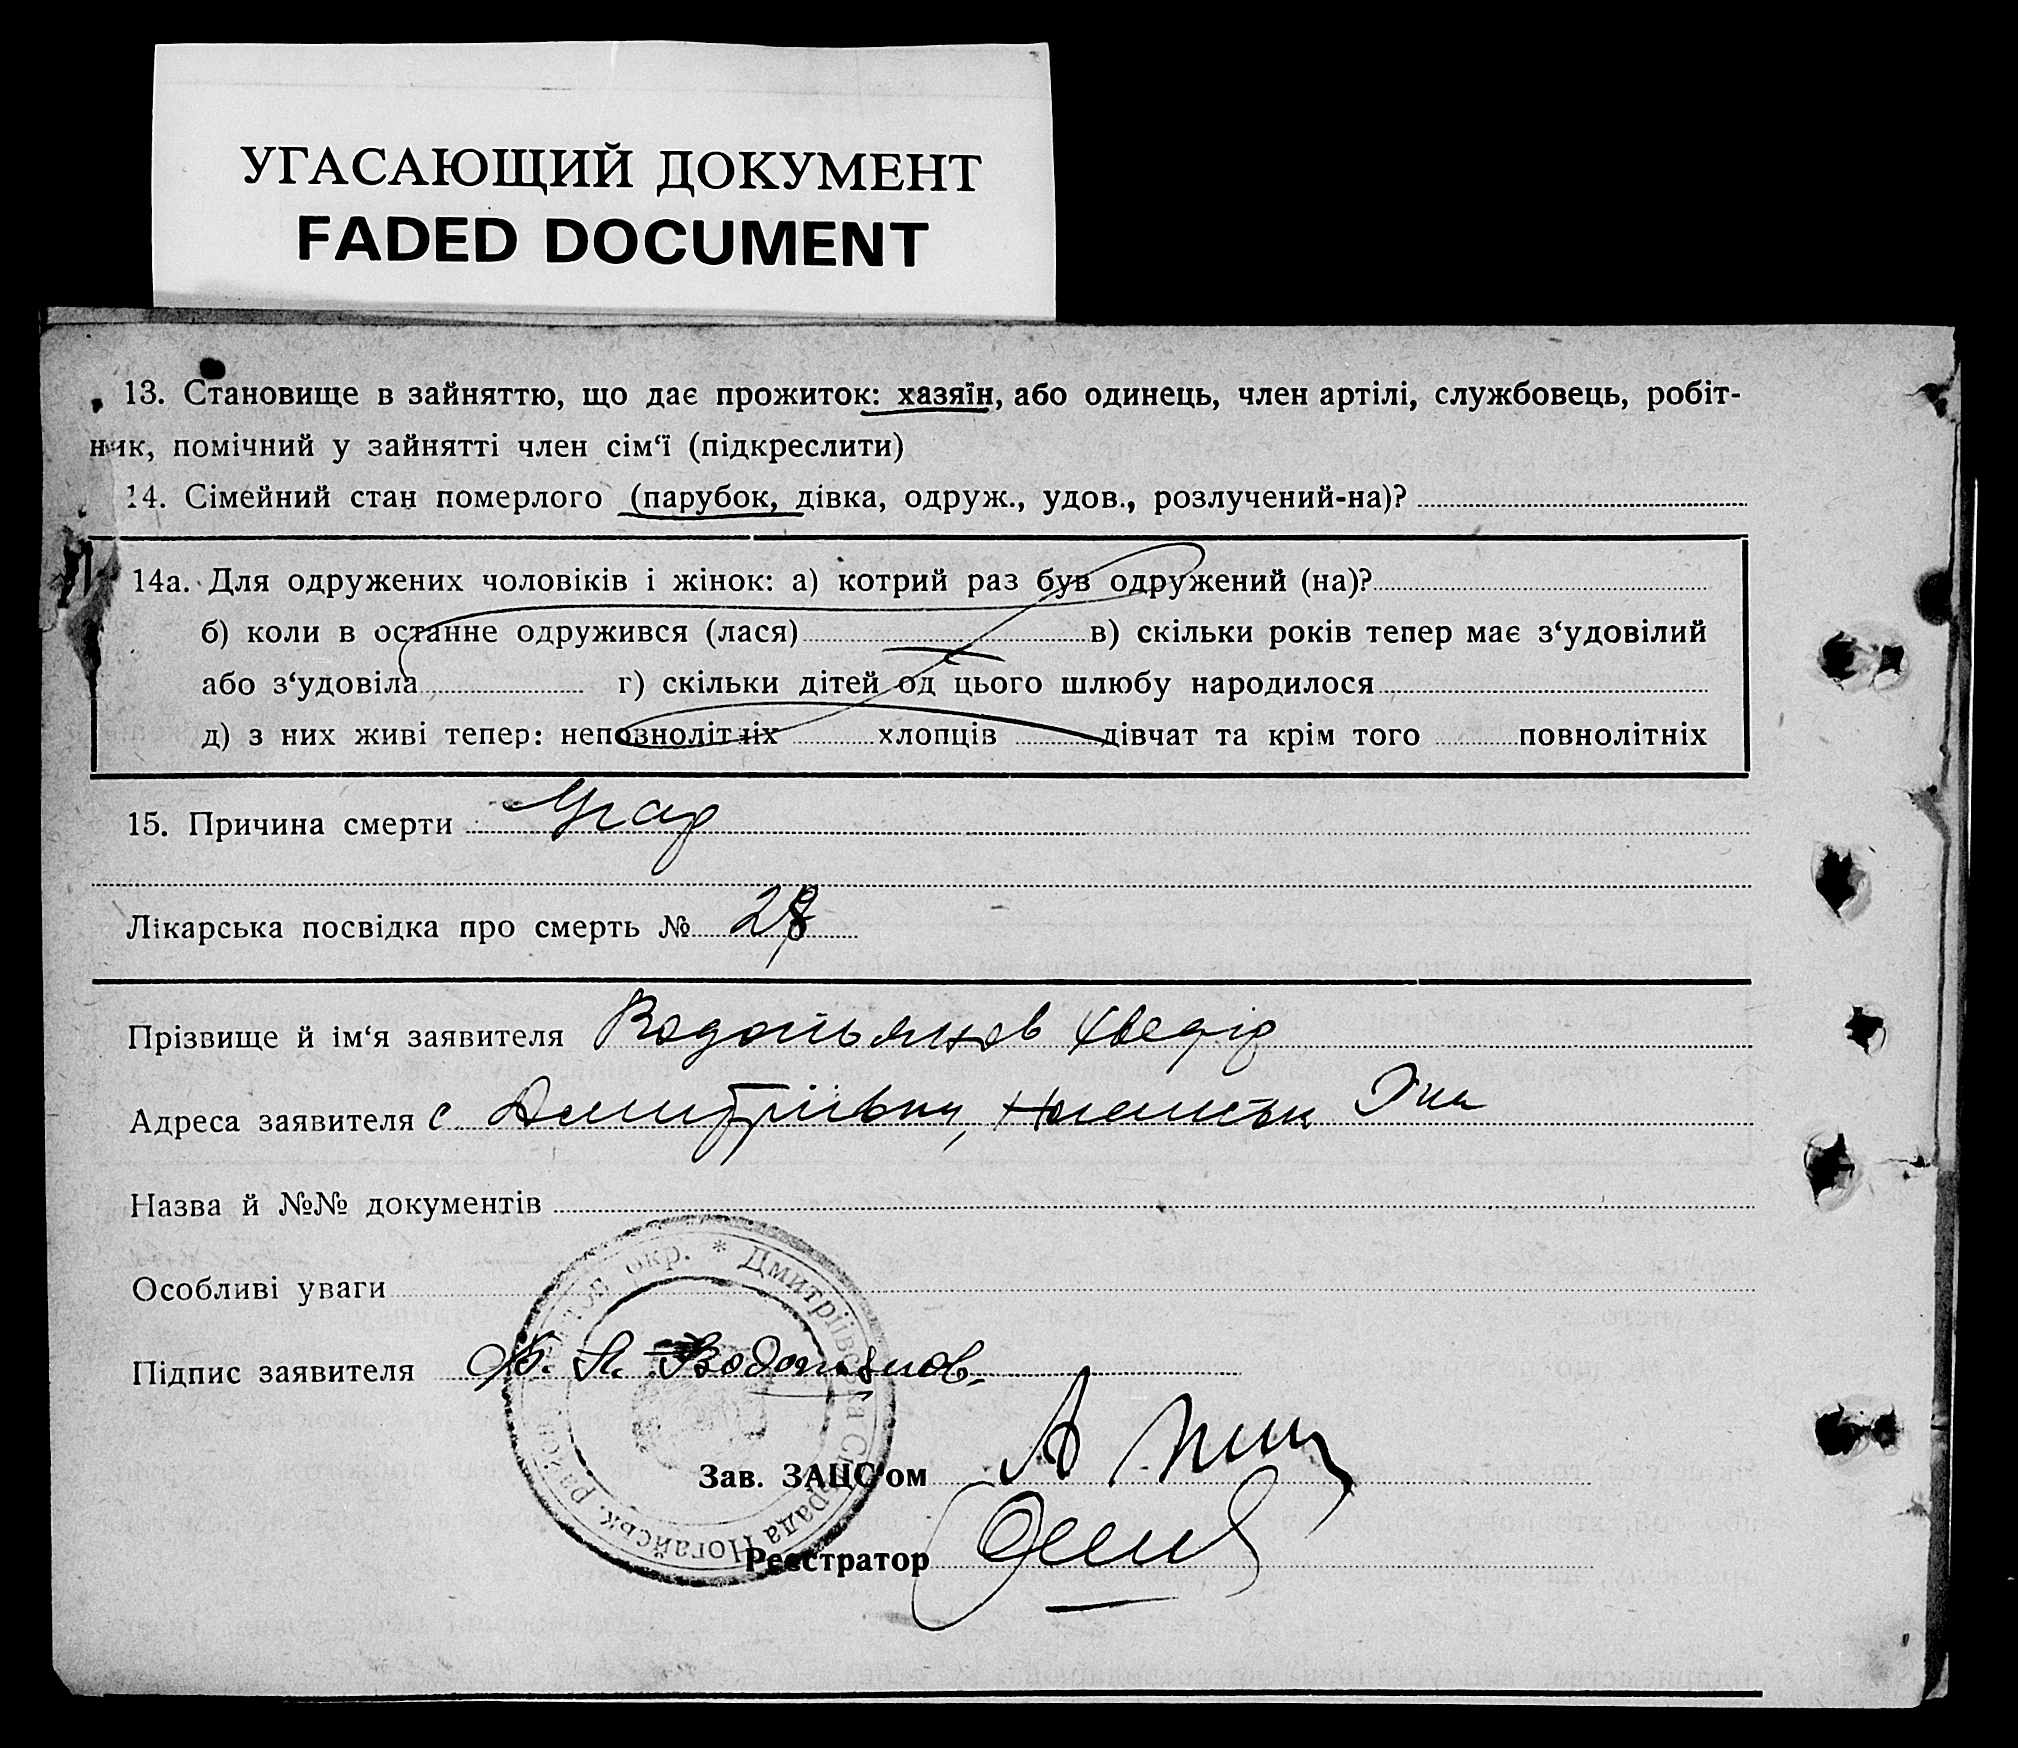 УГАСАЮЩИЙ ДОКУМЕНТ
FADED DOCUMENT
13. Становище в зайняттю, що дає прожиток: хазяїн, або одинець, член артілі, службовець, робіт-
ник, помічний у зайнятті член сім‘ї (підкреслити)
14. Сімейний стан померлого (парубок, дівка, одруж., удов., розлучений-на)?
14а. Для одружених чоловіків і жінок: а) котрий раз був одружений (на)?
б) коли в останне одружився (лася) в) скільки років тепер має з‘удовілий
або з‘удовіла г) скільки дітей од цього шлюбу народилося
д) з них живі тепер: неповнолітніх хлопців дівчат та крім того повнолітніх
15. Причина смерти
Лікарська посвідка про смерть № 28
Прізвище й ім‘я заявителя Водотьянов Хведір
Адреса заявителя с Дмитріївка,
Назва й №№ документів
Особливі уваги
окр. * Дмитріївська Сільрада Ногайськ. район
Підпис заявителя
Зав. ЗАЦС‘ом
Реєстратор